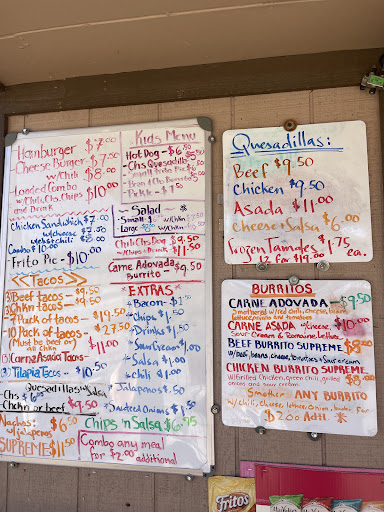 Hamburger $7.00
Cheese Burger $7.50
w/Chili $8.00
Loaded Combo
w/Chili, Chs, Chips $10.00
and Drink
Chicken Sandwich $7.00
w/cheese $7.50
Combo $10.00
Frito Pie - $10.00
<<Tacos>>
3) Beef tacos - $9.50
3) Chkn tacos - $9.50
7 Pack of tacos - $19.50
10 Pack of tacos - $27.50
(Must be beef or
all Chkn)
(3) Carne Asada Tacos $11.00
(3) Tilapia Tacos $10.50
Quesadillas w/Salsa
Chs $6.00
Chckn or beef $9.50
Nachos: $6.50
w/jalapenos
SUPREME $11.50
Kids Menu
Hot Dog - $6.50
Chs Quesadilla $5.50
Small Frito Pie $6.00
Pickle - $1.00
Salad
Small -
Large -
Chili Chs Dog $9.50
w/Chips & Drink $11.50
Carne Adovada
Burrito $9.50
EXTRAS
Bacon - $1.50
Chips $1.50
Drinks $1.50
Sour Cream $1.00
Salsa $1.00
Chili $1.00
Jalapenos $.50
Sauteed Onions $1.50
Chips 'n Salsa $6.75
Combo any meal
for $2.00 additional
Quesadillas:
Beef $9.50
Chicken $9.50
Asada $11.00
Cheese + Salsa $6.00
Frozen Tamales $1.75
12 for $19.00 ea.
BURRITOS
CARNE ADOVADA - $9.50
Smothered w/red chili, cheese, beans,
lettuce, onions and tomatoes
CARNE ASADA w/cheese, $10.00
Sour Cream & Romaine Lettuce
BEEF BURRITO SUPREME
w/beef, beans, cheese, tomatoes & sour cream $8.00
CHICKEN BURRITO SUPREME
w/Grilled Chicken, green chili, grilled
onions and sour cream $8.00
Smother ANY BURRITO
w/Chili, cheese, lettuce, onion, tomato for
$2.00 Addtl. *
Fritos